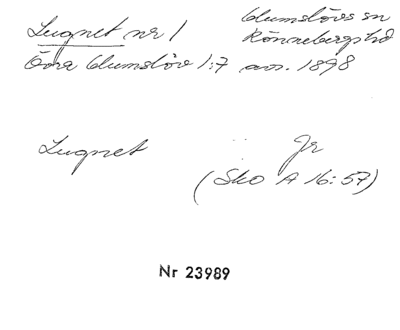 Lugnet nr 1
Glumslövs sn
Rönnebergs hd
Övra Glumslöv 1:7 avs. 1898
Lugnet
Jr
(Sko A 16:57)
Nr 23989